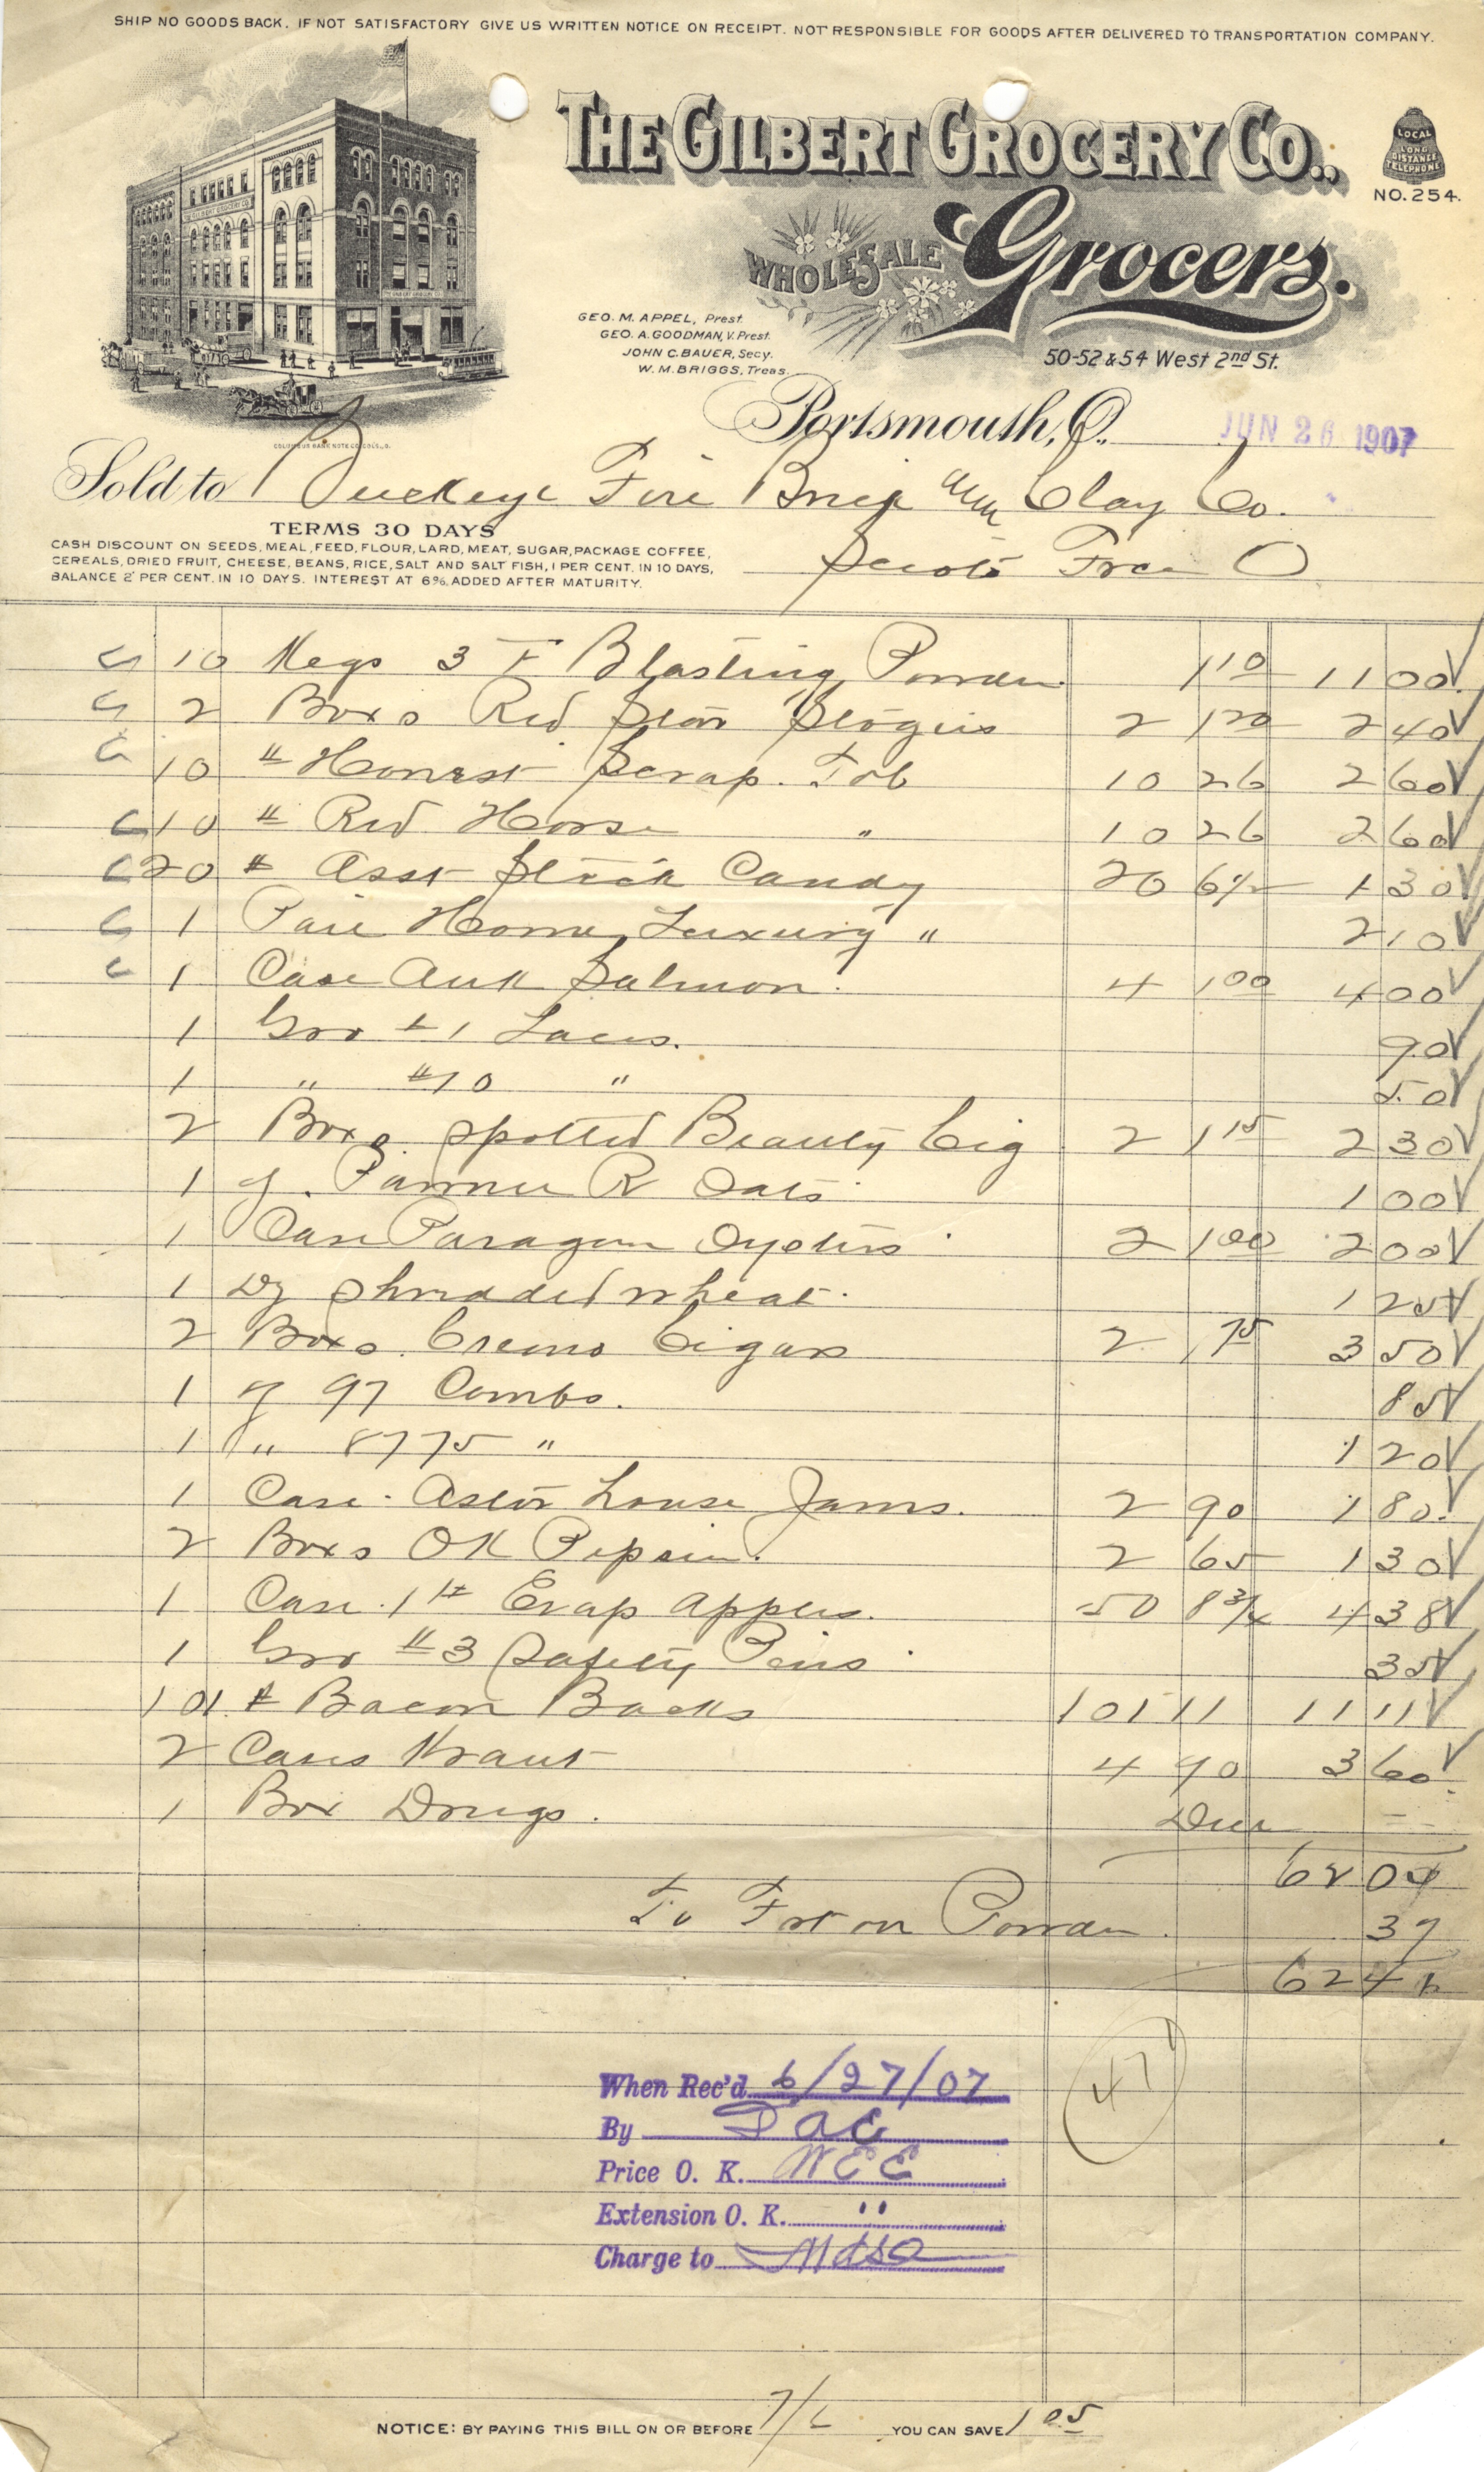 SHIP NO GOODS BACK. IF NOT SATISFACTORY GIVE US WRITTEN NOTICE ON RECEIPT. NOT RESPONSIBLE FOR GOODS AFTER DELIVERED TO TRANSPORTATION COMPANY.
THE GILBERT GROCERY CO.,
LOCAL
LONG
DISTANCE
TELEPHONE
NO. 254.
WHOLESALE Grocers.
GEO. M. APPEL, Prest.
GEO. A. GOODMAN, V. Prest.
JOHN C. BAUER, Secy.
W. M. BRIGGS, Treas.
50-52 & 54 West 2nd St.
Portsmouth, O., JUN 26 1907
Sold to Buckeye Fire Brick and Clay Co.
TERMS 30 DAYS
CASH DISCOUNT ON SEEDS, MEAL, FEED, FLOUR, LARD, MEAT, SUGAR, PACKAGE COFFEE,
CEREALS, DRIED FRUIT, CHEESE, BEANS, RICE, SALT AND SALT FISH, 1 PER CENT. IN 10 DAYS,
BALANCE 2 PER CENT. IN 10 DAYS. INTEREST AT 6% ADDED AFTER MATURITY.
Scioto Fce O
10 Kegs 3 F Blasting Powder 1 10 11 00
2 Boxs Red Star Stogies 2 1 20 2 40
10 # Honest Scrap. Tob 10 26 2 60
10 # Red Horse " 10 26 2 60
20 # Asst Stick Candy 20 6½ 1 30
1 Pail Home Luxury " 2 10
1 Case Auk Salmon 4 1 00 4 00
1 Gro #1 Laces. 90
1 " #10 " 50
2 Boxs Spotted Beauty Cig 2 1 15 2 30
1 Farmer R Oats 1 00
1 Case Paragon Oysters 2 1 00 2 00
1 Dz Shredded Wheat. 1 25
2 Boxs Cremo Cigars 2 1 75 3 50
1 97 Combs. 85
1 " 8775 " 1 20
1 Case Astor House Jams. 2 90 1 80
2 Boxs OK Pepsin. 2 65 1 30
1 Case 1# Evap Apples. 50 8¾ 4 38
1 Gro #3 Safety Pins 35
101 # Bacon Backs 101 11 11 11
2 Cases Kraut 4 90 3 60
1 Box Drugs.
62 04
To Frt on Powder. 37
62 41
47
When Rec'd 6/27/07
By
Price O. K. WEE
Extension O. K. "
Charge to Mdse
NOTICE: BY PAYING THIS BILL ON OR BEFORE 7/6 YOU CAN SAVE 1 05